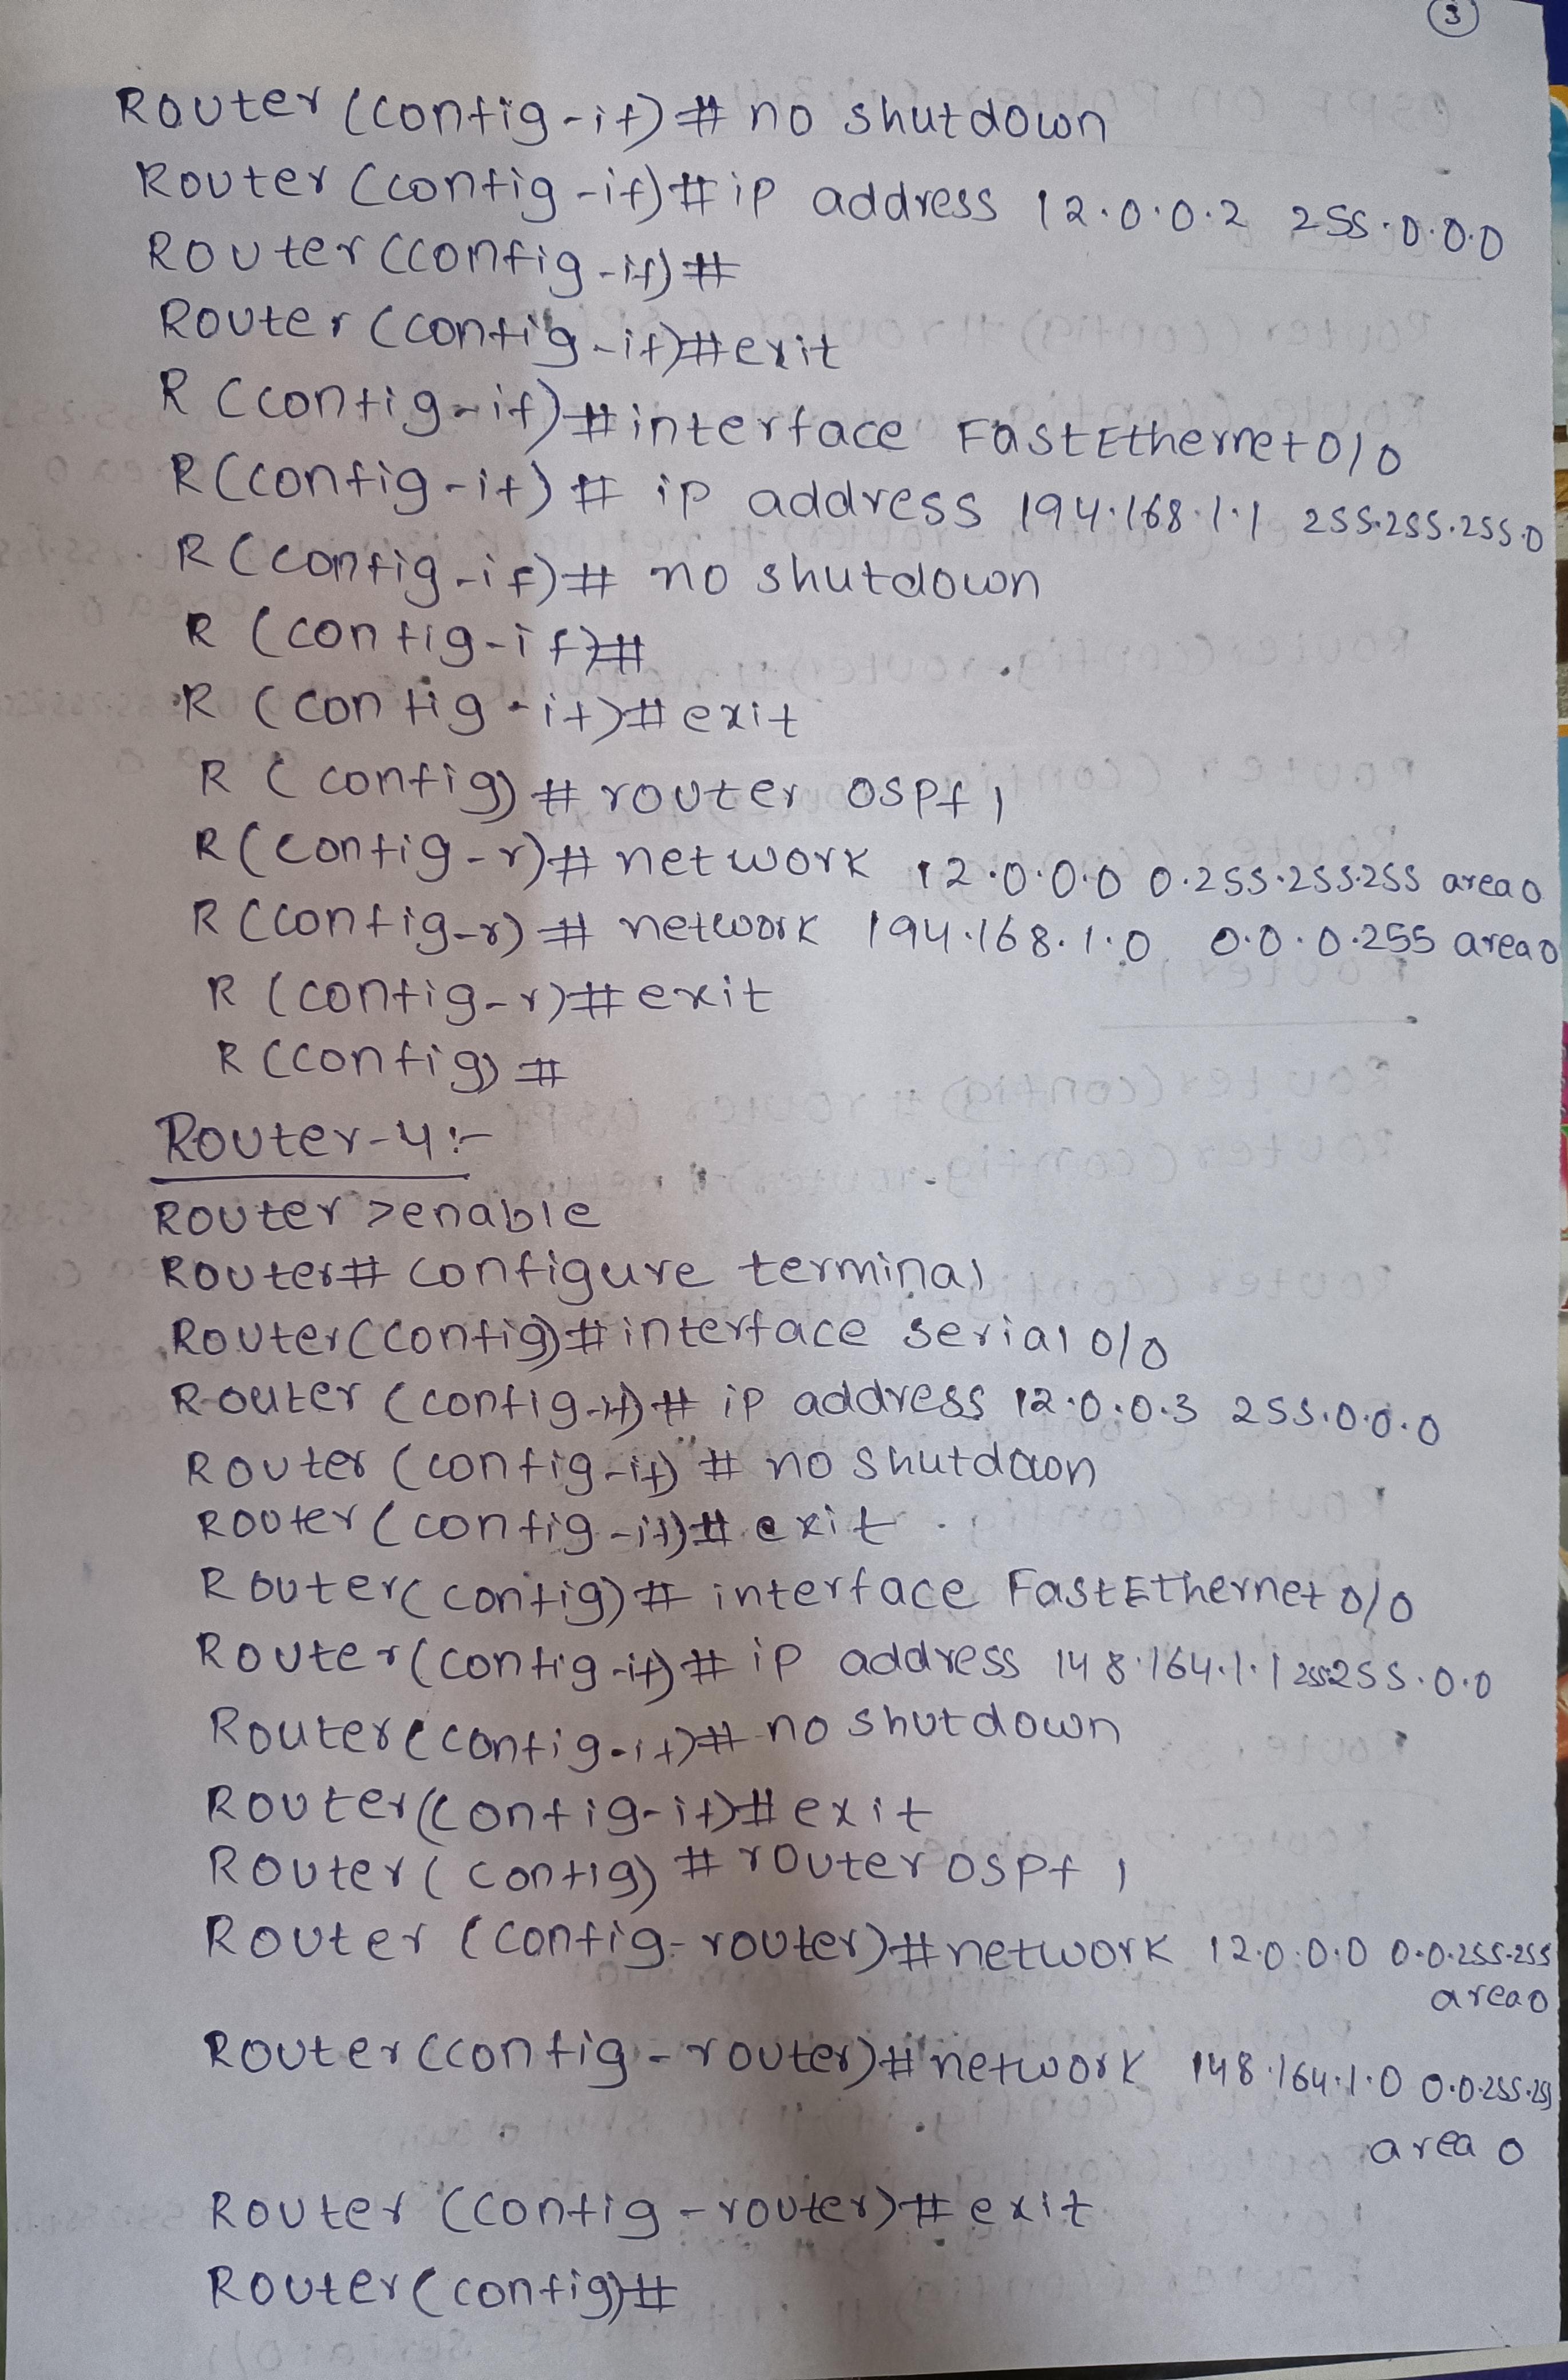 3
Router (config-if)# no shutdown
Router (config-if)# ip address 12.0.0.2 255.0.0.0
Router (config-if)#
Router (config-if)#exit
R (config-if)#interface FastEthernet0/0
R(config-if)# ip address 194.168.1.1 255.255.255.0
R (config-if)# no shutdown
R (config-if)#
R (config-if)#exit
R (config)# router ospf 1
R(config-r)# network 12.0.0.0 0.255.255.255 area 0
R (config-r)# network 194.168.1.0 0.0.0.255 area 0
R (config-r)#exit
R (config)#
Router-4:-
Router >enable
Router# configure terminal
Router(config)#interface serial 0/0
Router (config-if)# ip address 12.0.0.3 255.0.0.0
Router (config-if)# no shutdown
Router (config-if)# exit
Router(config)# interface FastEthernet 0/0
Router(config-if)# ip address 148.164.1.1 255.255.0.0
Router(config-if)# no shutdown
Router(config-if)#exit
Router (config) # router ospf 1
Router (config-router)#network 12.0.0.0 0.0.255.255
area 0
Router (config-router)#network 148.164.1.0 0.0.255.255
area 0
Router (config-router)# exit
Router(config)#